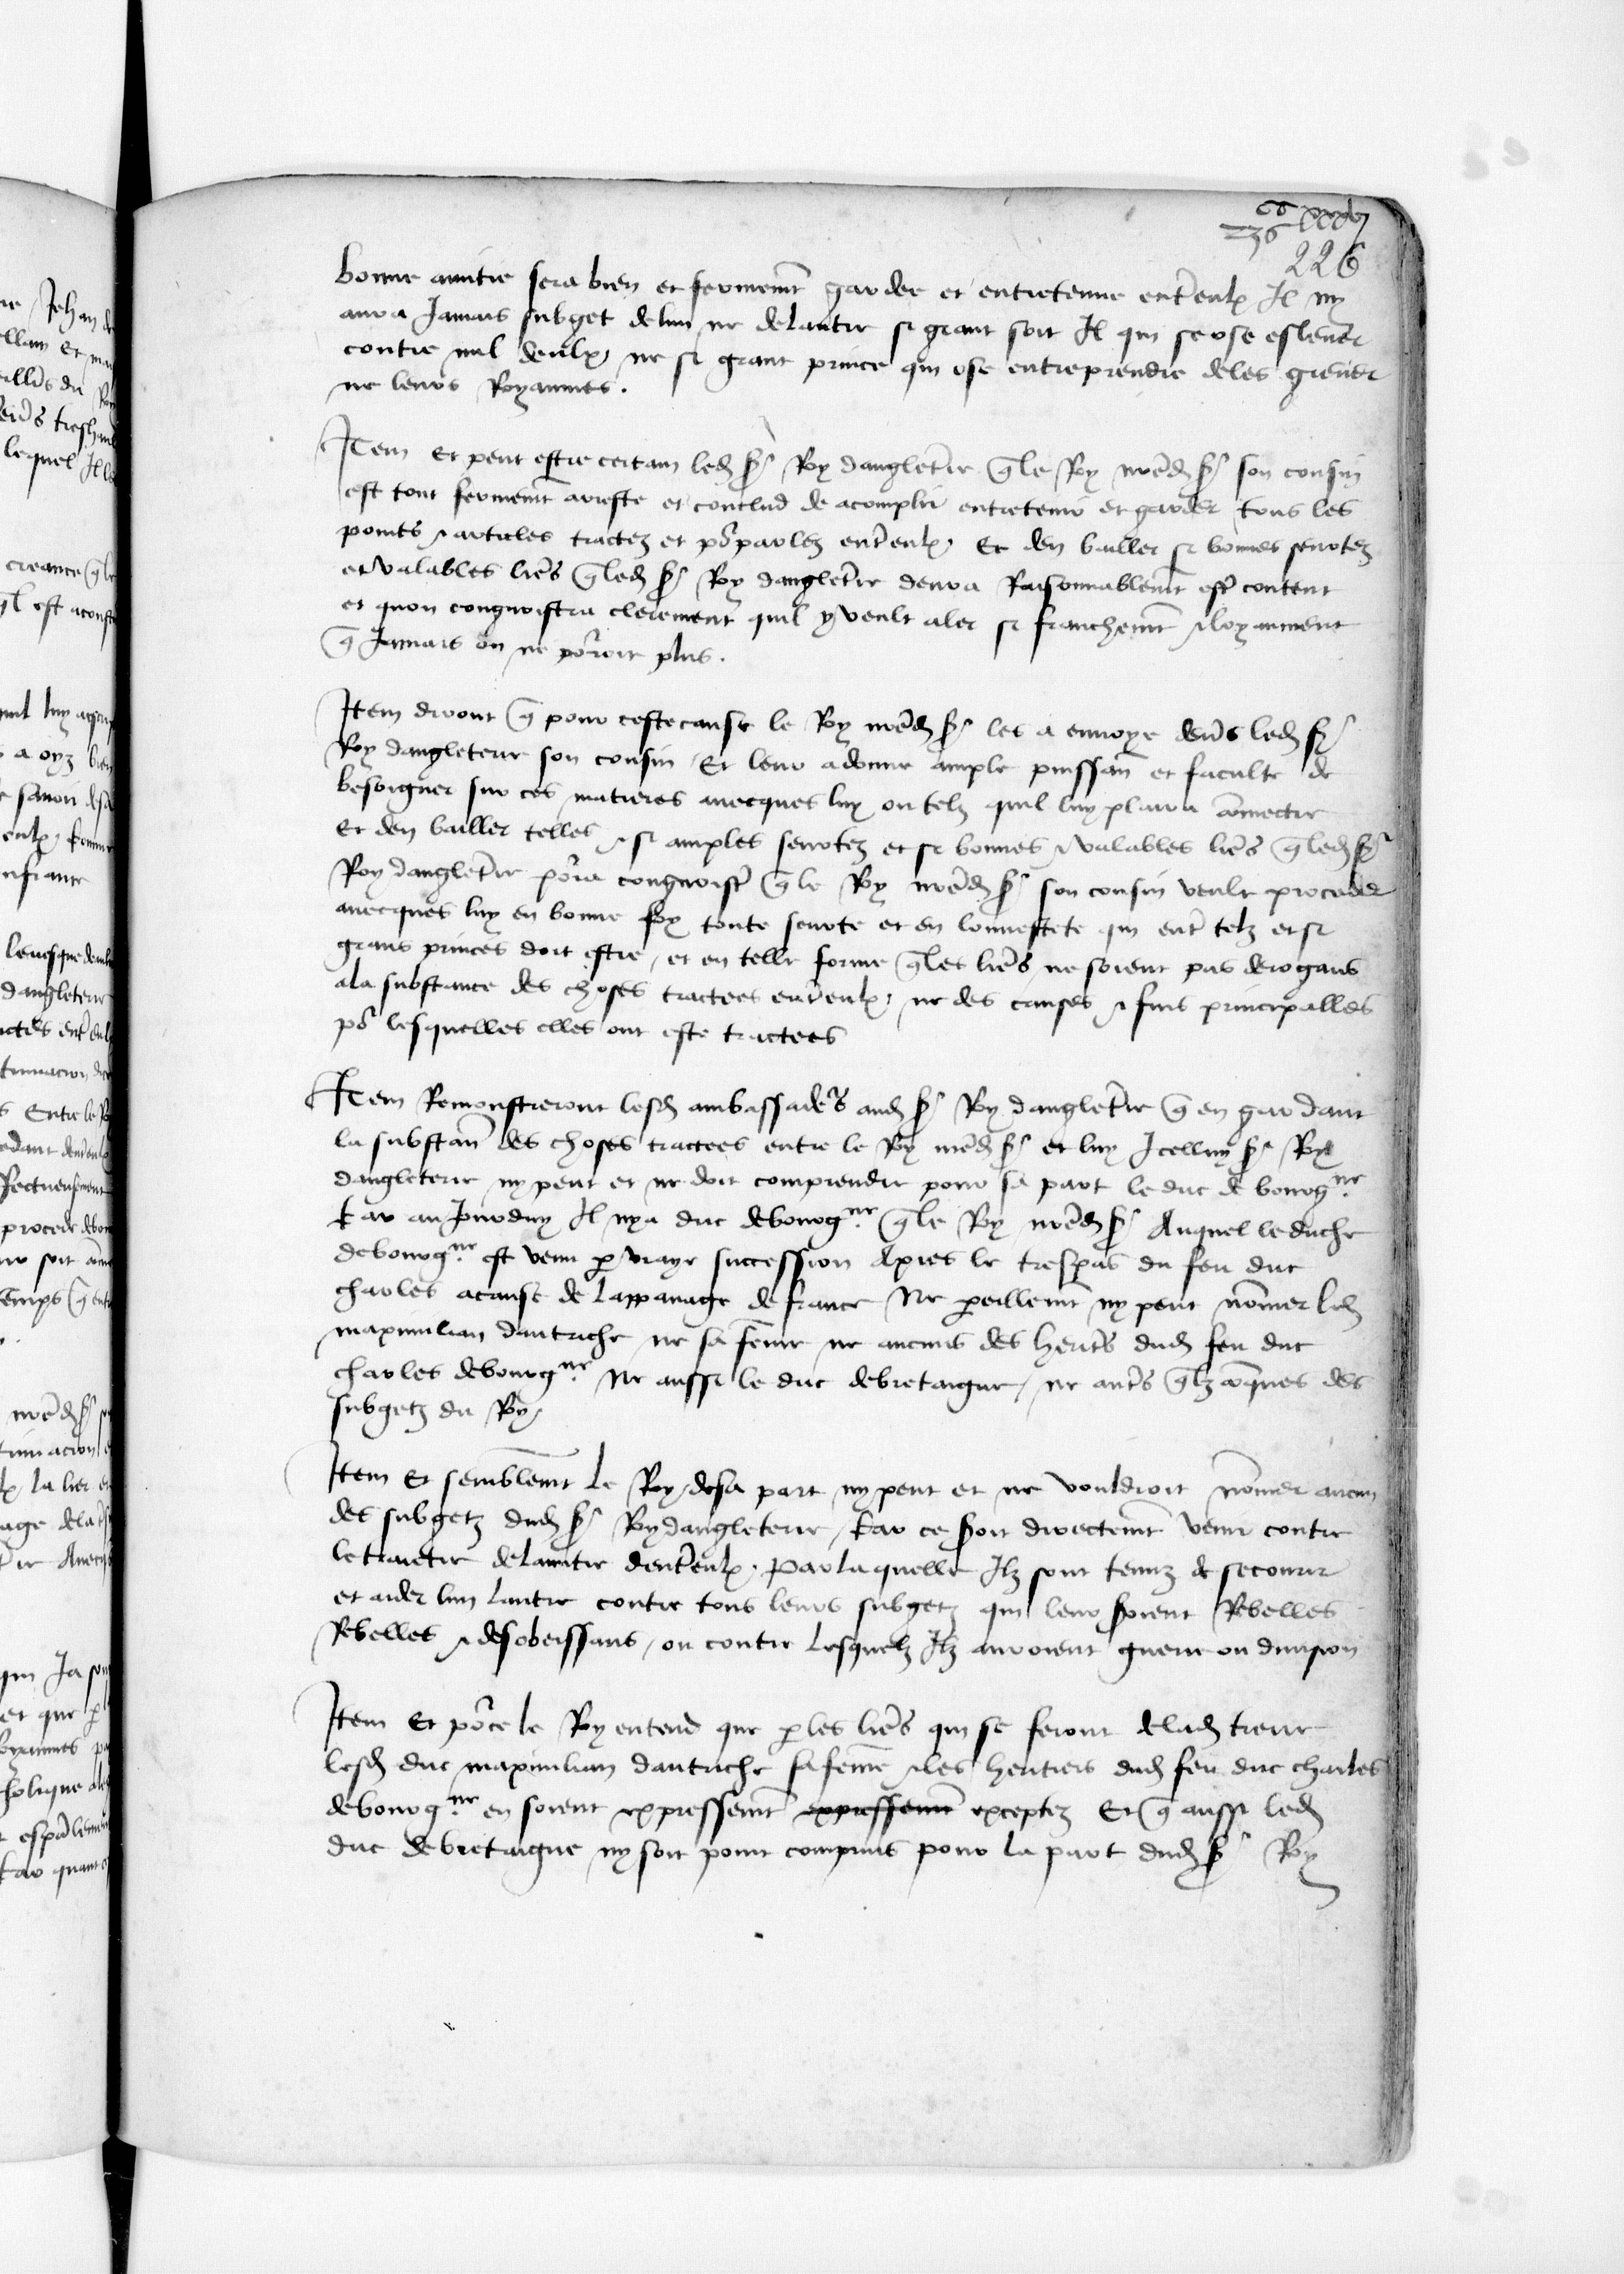 226
bonne amitie sera bien et fermemt gardee et entretenue entr eulx Il ny
aura Jamais subget de lun ne de lautre si grant soit Il qui se ose eslever
contre nul deulx, ne si grant prince qui ose entreprendre de les grever
ne leurs Royaumes.
Item Et peut estre certain led sr Roy dangleterre q le Roy nred sr son cousin
est tout fermemt arreste et conclud de acomplir entretenir et garder tous les
points & articles traictez et porparlez entreulx, Et den bailler si bonnes seurtez
et valables lres q led sr Roy dangleterre devra Raisonnablemt estre content
et quon congnoistra clerement quil y veult aler si franchemt & loyaument
q Jamais on ne porroit plus.
Item diront q pour ceste cause le Roy nred sr les a envoye devers led sr
Roy dangleterre son cousin, Et leur a donne ample puissan et faculte de
besoigner sur ces matieres avecques luy ou telz quil luy plaira comectre
Et den bailler telles & si amples seurtez et si bonnes & valables lres q led sr
Roy dangleterre porra congnoistre q le Roy nred sr son cousin veult proceder
avecques luy en bonne foy toute seurte et en lonnestete qui entre telz et si
grans princes doit estre, et en telle forme q les lres ne soient pas derogans
a la substance des choses traictees entreulx, ne des causes & fins principalles
por lesquelles elles ont este traictees
Item Remonstreront lesd ambassaders aud sr Roy dangleterre q en gardant
la substan des choses traictees entre le Roy nred sr et luy Icelluy sr Roy
dangleterre ny peut et ne doit comprendre pour sa part le duc de bourgne
Car au Jourduy Il nya duc de bourgne q le Roy nred sr Auquel le duche
de bourgne est venu p vraye succession Apres le trespas du feu duc
charles a cause de lappanage de france Ne pareillemt ny peut nommer led
maximilian dautriche ne sa feme ne aucuns des heritrs dud feu duc
charles de bourgne Ne aussi le duc de bretaigne, ne autrs qlzconques des
subgetz du Roy,
Item Et semblemt le Roy de sa part ny peut et ne vouldroit nommer aucun
des subgetz dud sr Roy dangleterre, Car ce seroit directemt venir contre
le traictie de lamitie dentreulx. Par laquelle Ilz sont tenuz de secourir
et aider lun lautre contre tous leurs subgetz qui leur seroient Rebelles
Rebelles & desobeissans, ou contre lesquelz Ilz auroient guerre ou division
Item Et por ce le Roy entend que p les lres qui se feront de lad treve
lesd duc maximilian dautriche sa feme & les heritiers dud feu duc charles
de bourgne en soient expressemt expressemt exceptez Et q aussi led
duc de bretaigne ny soit point comprins pour la part dud sr Roy